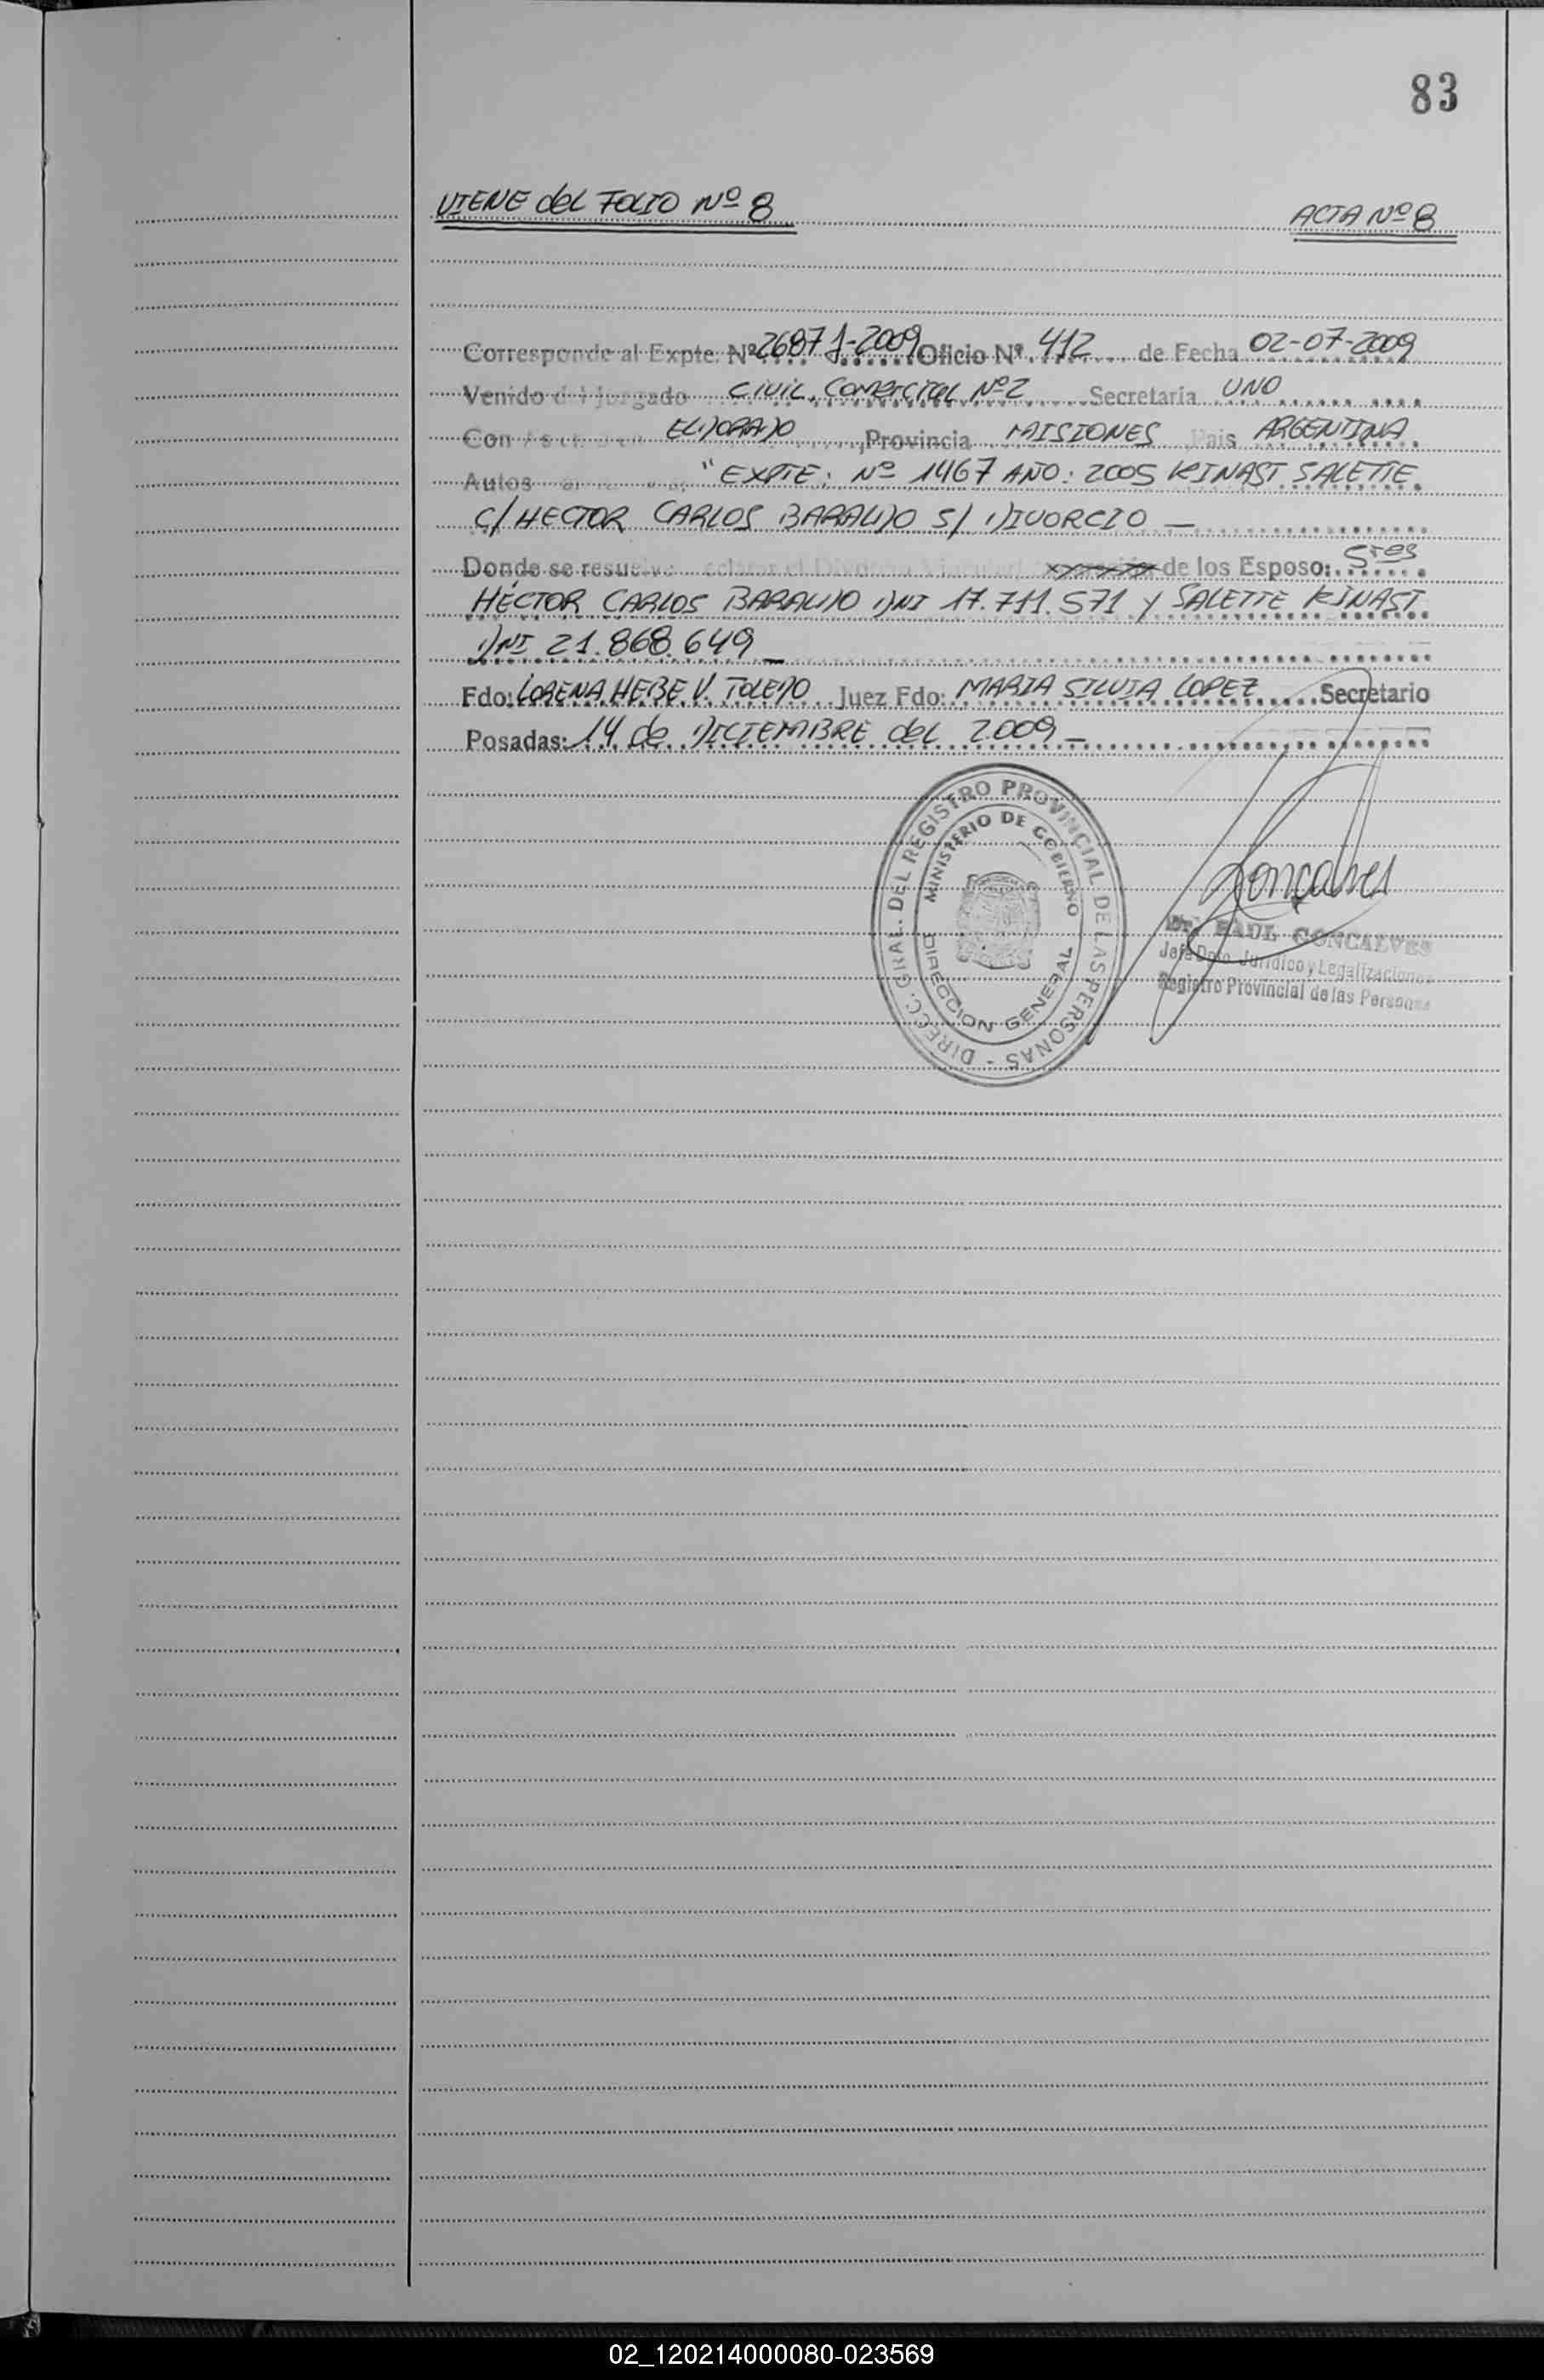 83
VIENE del FOLIO Nº 8
ACTA Nº 8
Corresponde al Expte. Nº 2687 J-2009 Oficio Nº 412 de Fecha 02-07-2009
Venido del juzgado CIVIL, COMERCIAL Nº2 Secretaria UNO
Con ELDORADO, Provincia MISIONES Pais ARGENTINA
Autos "EXPTE: Nº 1467 AÑO: 2005 KINAST SALETTE
C/ HECTOR CARLOS BARAUDO S/ DIVORCIO —
Donde se resuelve declarar el Divorcio Vincular de los Esposo: Sres
HÉCTOR CARLOS BARAUDO DNI 17.711.571 y SALETTE KINAST
DNI 21.868.649 —
Fdo: LORENA HEBE V. TOLEDO Juez Fdo: MARIA SILVIA LOPEZ Secretario
Posadas: 14 de DICIEMBRE del 2.009 —
DIRECC. GRAL. DEL REGISTRO PROVINCIAL DE LAS PERSONAS -
MINISTERIO DE GOBIERNO
DIRECCION GENERAL
Gonçalves
Dr. RAUL GONCALVES
Jefe Dpto. Jurídico y Legalizaciones
Registro Provincial de las Personas
02_120214000080-023569